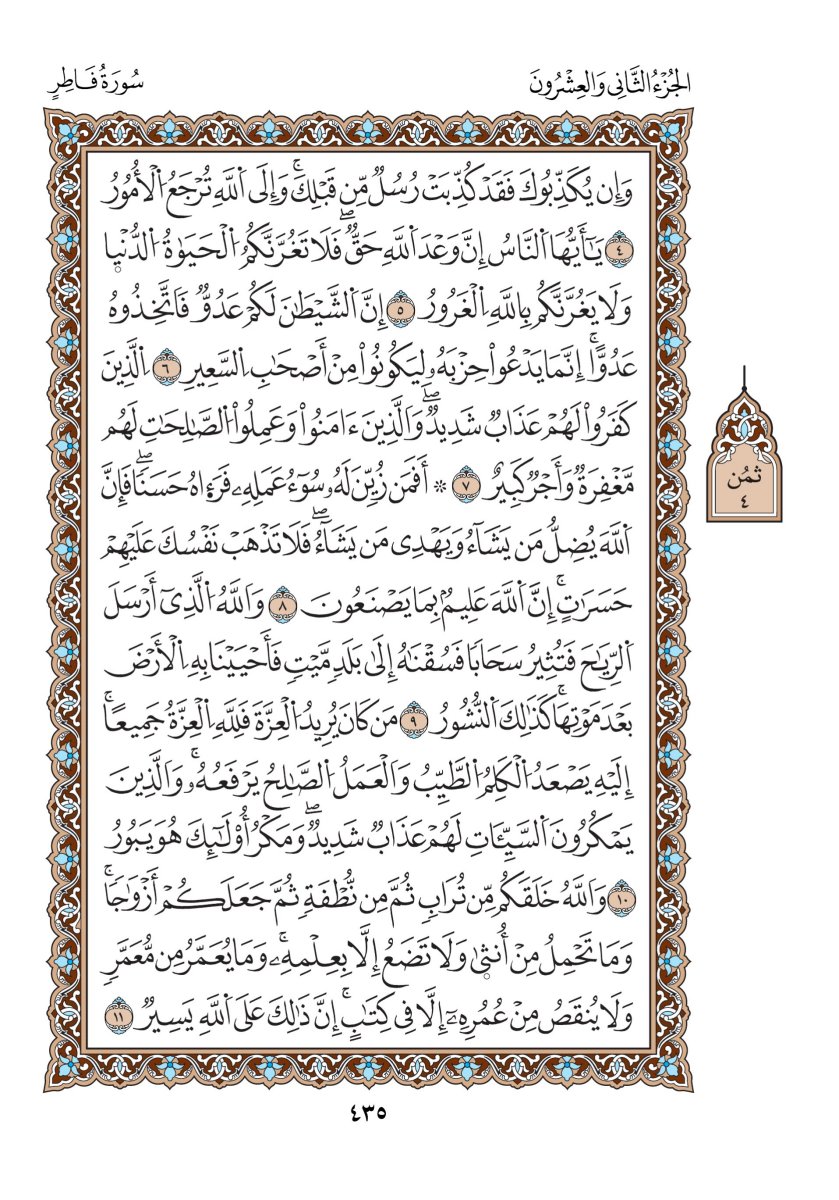 الجُزْءُ الثَّانِي وَالعِشْرُونَ
سُورَةُ فَاطِرٍ
وَإِن يُكَذِّبُوكَ فَقَدْ كُذِّبَتْ رُسُلٌ مِّن قَبْلِكَۚ وَإِلَى اَ۬للَّهِ تُرْجَعُ اُ۬لْأُمُورُ
٤ يَـٰٓأَيُّهَا اَ۬لنَّاسُ إِنَّ وَعْدَ اَ۬للَّهِ حَقّٞۖ فَلَا تَغُرَّنَّكُمُ اُ۬لْحَيَوٰةُ اُ۬لدُّنْي۪ا
وَلَا يَغُرَّنَّكُم بِاللَّهِ اِ۬لْغَرُورُ ٥ إِنَّ اَ۬لشَّيْطَٰنَ لَكُمْ عَدُوّٞ فَاتَّخِذُوهُ
عَدُوًّاۚ إِنَّمَا يَدْعُواْ حِزْبَهُۥ لِيَكُونُواْ مِنْ أَصْحَٰبِ اِ۬لسَّعِيرِ ٦ اِ۬لَّذِينَ
كَفَرُواْ لَهُمْ عَذَابٞ شَدِيدٞۖ وَالَّذِينَ ءَامَنُواْ وَعَمِلُواْ اُ۬لصَّٰلِحَٰتِ لَهُم
مَّغْفِرَةٞ وَأَجْرٞ كَبِيرٌ ٧ ۞ أَفَمَن زُيِّنَ لَهُۥ سُوٓءُ عَمَلِهِۦ فَرَءَاهُ حَسَنٗاۖ فَإِنَّ
اَ۬للَّهَ يُضِلُّ مَن يَشَآءُ وَيَهْدِي مَن يَشَآءُۖ فَلَا تَذْهَبْ نَفْسُكَ عَلَيْهِمْ
حَسَرَٰتٍۚ إِنَّ اَ۬للَّهَ عَلِيمُۢ بِمَا يَصْنَعُونَ ٨ وَاللَّهُ اُ۬لَّذِيٓ أَرْسَلَ
اَ۬لرِّيَٰحَ فَتُثِيرُ سَحَابٗا فَسُقْنَٰهُ إِلَىٰ بَلَدٖ مَّيْتٖ فَأَحْيَيْنَا بِهِ اِ۬لْأَرْضَ
بَعْدَ مَوْتِهَاۚ كَذَٰلِكَ اَ۬لنُّشُورُ ٩ مَن كَانَ يُرِيدُ اُ۬لْعِزَّةَ فَلِلَّهِ اِ۬لْعِزَّةُ جَمِيعًاۚ
إِلَيْهِ يَصْعَدُ اُ۬لْكَلِمُ اُ۬لطَّيِّبُ وَالْعَمَلُ اُ۬لصَّٰلِحُ يَرْفَعُهُۥۚ وَالَّذِينَ
يَمْكُرُونَ اَ۬لسَّيِّـَٔاتِ لَهُمْ عَذَابٞ شَدِيدٞۖ وَمَكْرُ أُوْلَٰٓئِكَ هُوَ يَبُورُ
١٠ وَاللَّهُ خَلَقَكُم مِّن تُرَابٖ ثُمَّ مِن نُّطْفَةٖ ثُمَّ جَعَلَكُمْ أَزْوَٰجٗاۚ
وَمَا تَحْمِلُ مِنْ أُنث۪ىٰ وَلَا تَضَعُ إِلَّا بِعِلْمِهِۦۚ وَمَا يُعَمَّرُ مِن مُّعَمَّرٖ
وَلَا يُنقَصُ مِنْ عُمُرِهِۦٓ إِلَّا فِي كِتَٰبٍۚ إِنَّ ذَٰلِكَ عَلَى اَ۬للَّهِ يَسِيرٞ ١١
ثُمُن
٤
٤٣٥